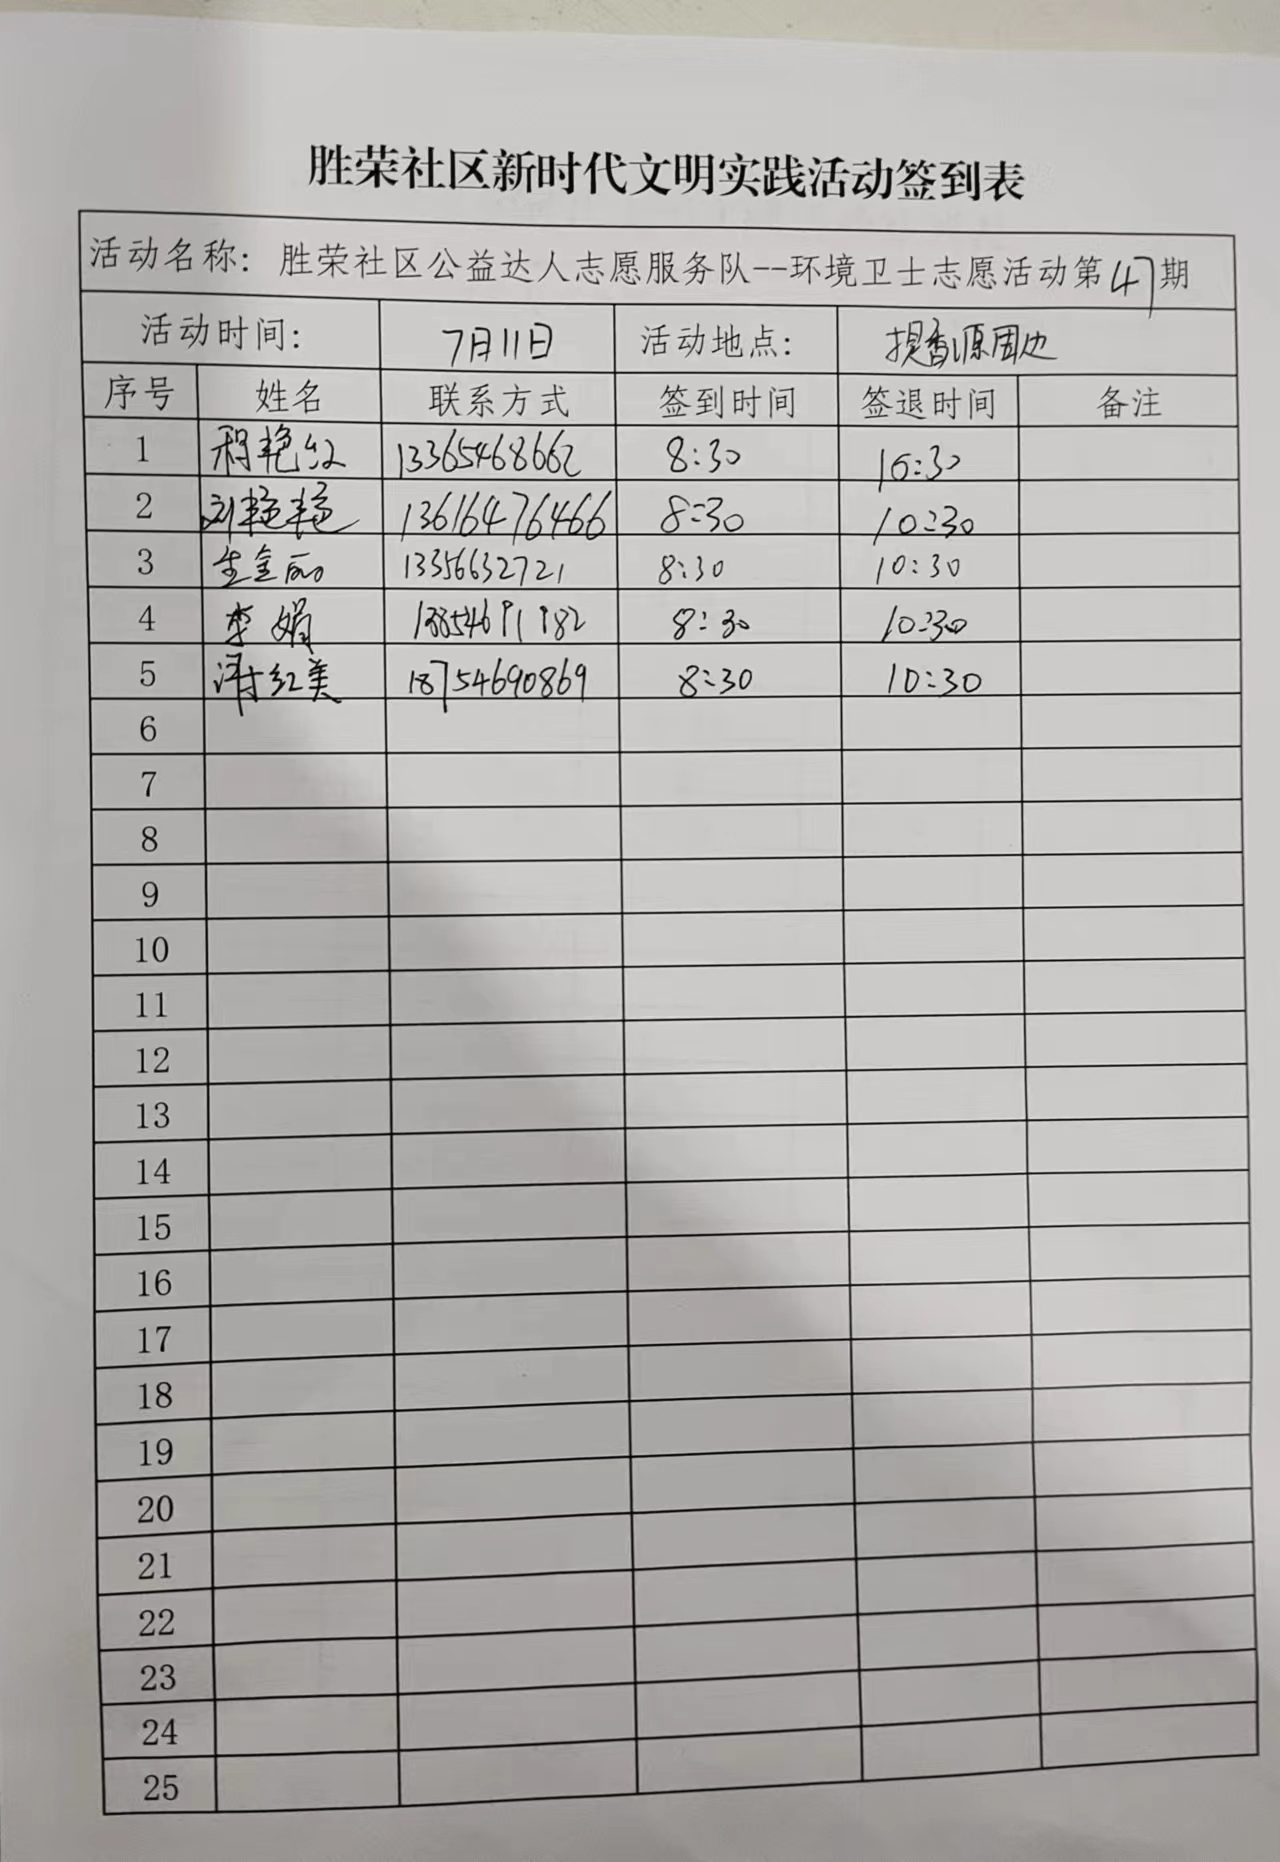 胜荣社区新时代文明实践活动签到表
活动名称: 胜荣社区公益达人志愿服务队--环境卫士志愿活动第47期
活动时间: 7月11日 活动地点: 提香源周边
序号 姓名 联系方式 签到时间 签退时间 备注
1 程艳红 13365468662 8:30 10:30
2 刘艳艳 13616476466 8:30 10:30
3 生金丽 13356632721 8:30 10:30
4 李娟 8:30 10:30
5 红美 18754690869 8:30 10:30
6
7
8
9
10
11
12
13
14
15
16
17
18
19
20
21
22
23
24
25